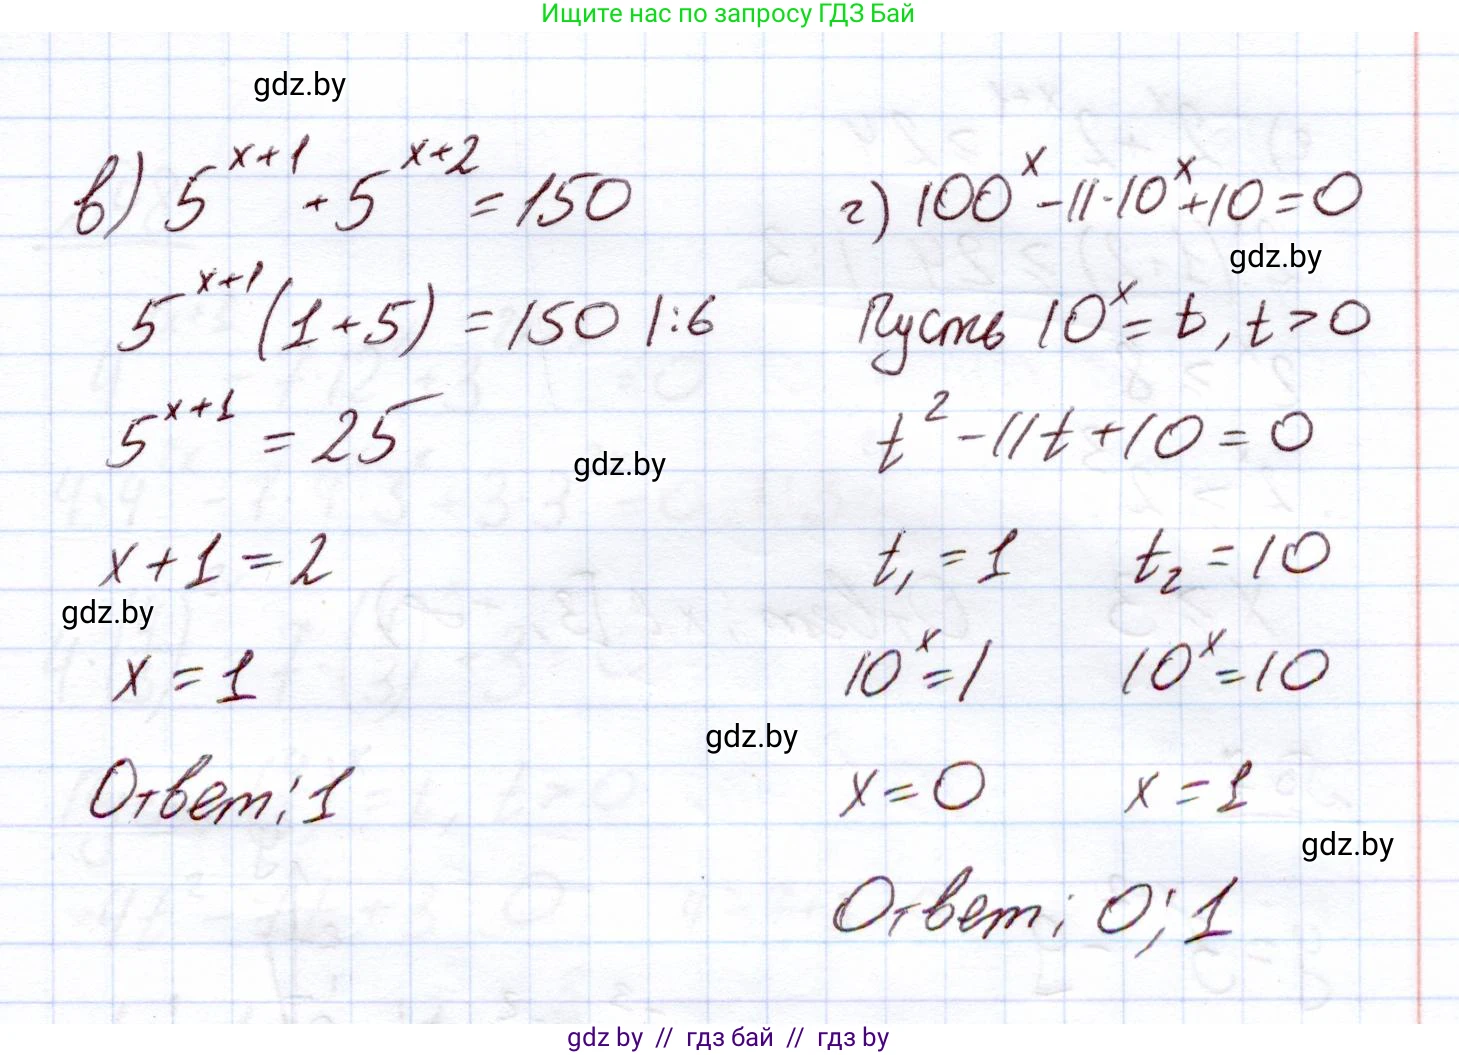 Ищите нас по запросу ГДЗ Бай
gdz.by
в) 5^{x+1} + 5^{x+2} = 150
5^{x+1} (1+5) = 150 |:6
5^{x+1} = 25
gdz.by
x+1=2
gdz.by
x=1
Ответ: 1
г) 100^x - 11·10^x + 10 = 0
gdz.by
Пусть 10^x = t, t > 0
t^2 - 11t + 10 = 0
t_1 = 1 t_2 = 10
10^x = 1 10^x = 10
gdz.by
x = 0 x = 1
gdz.by
Ответ: 0; 1
gdz by // гдз бай // гдз by